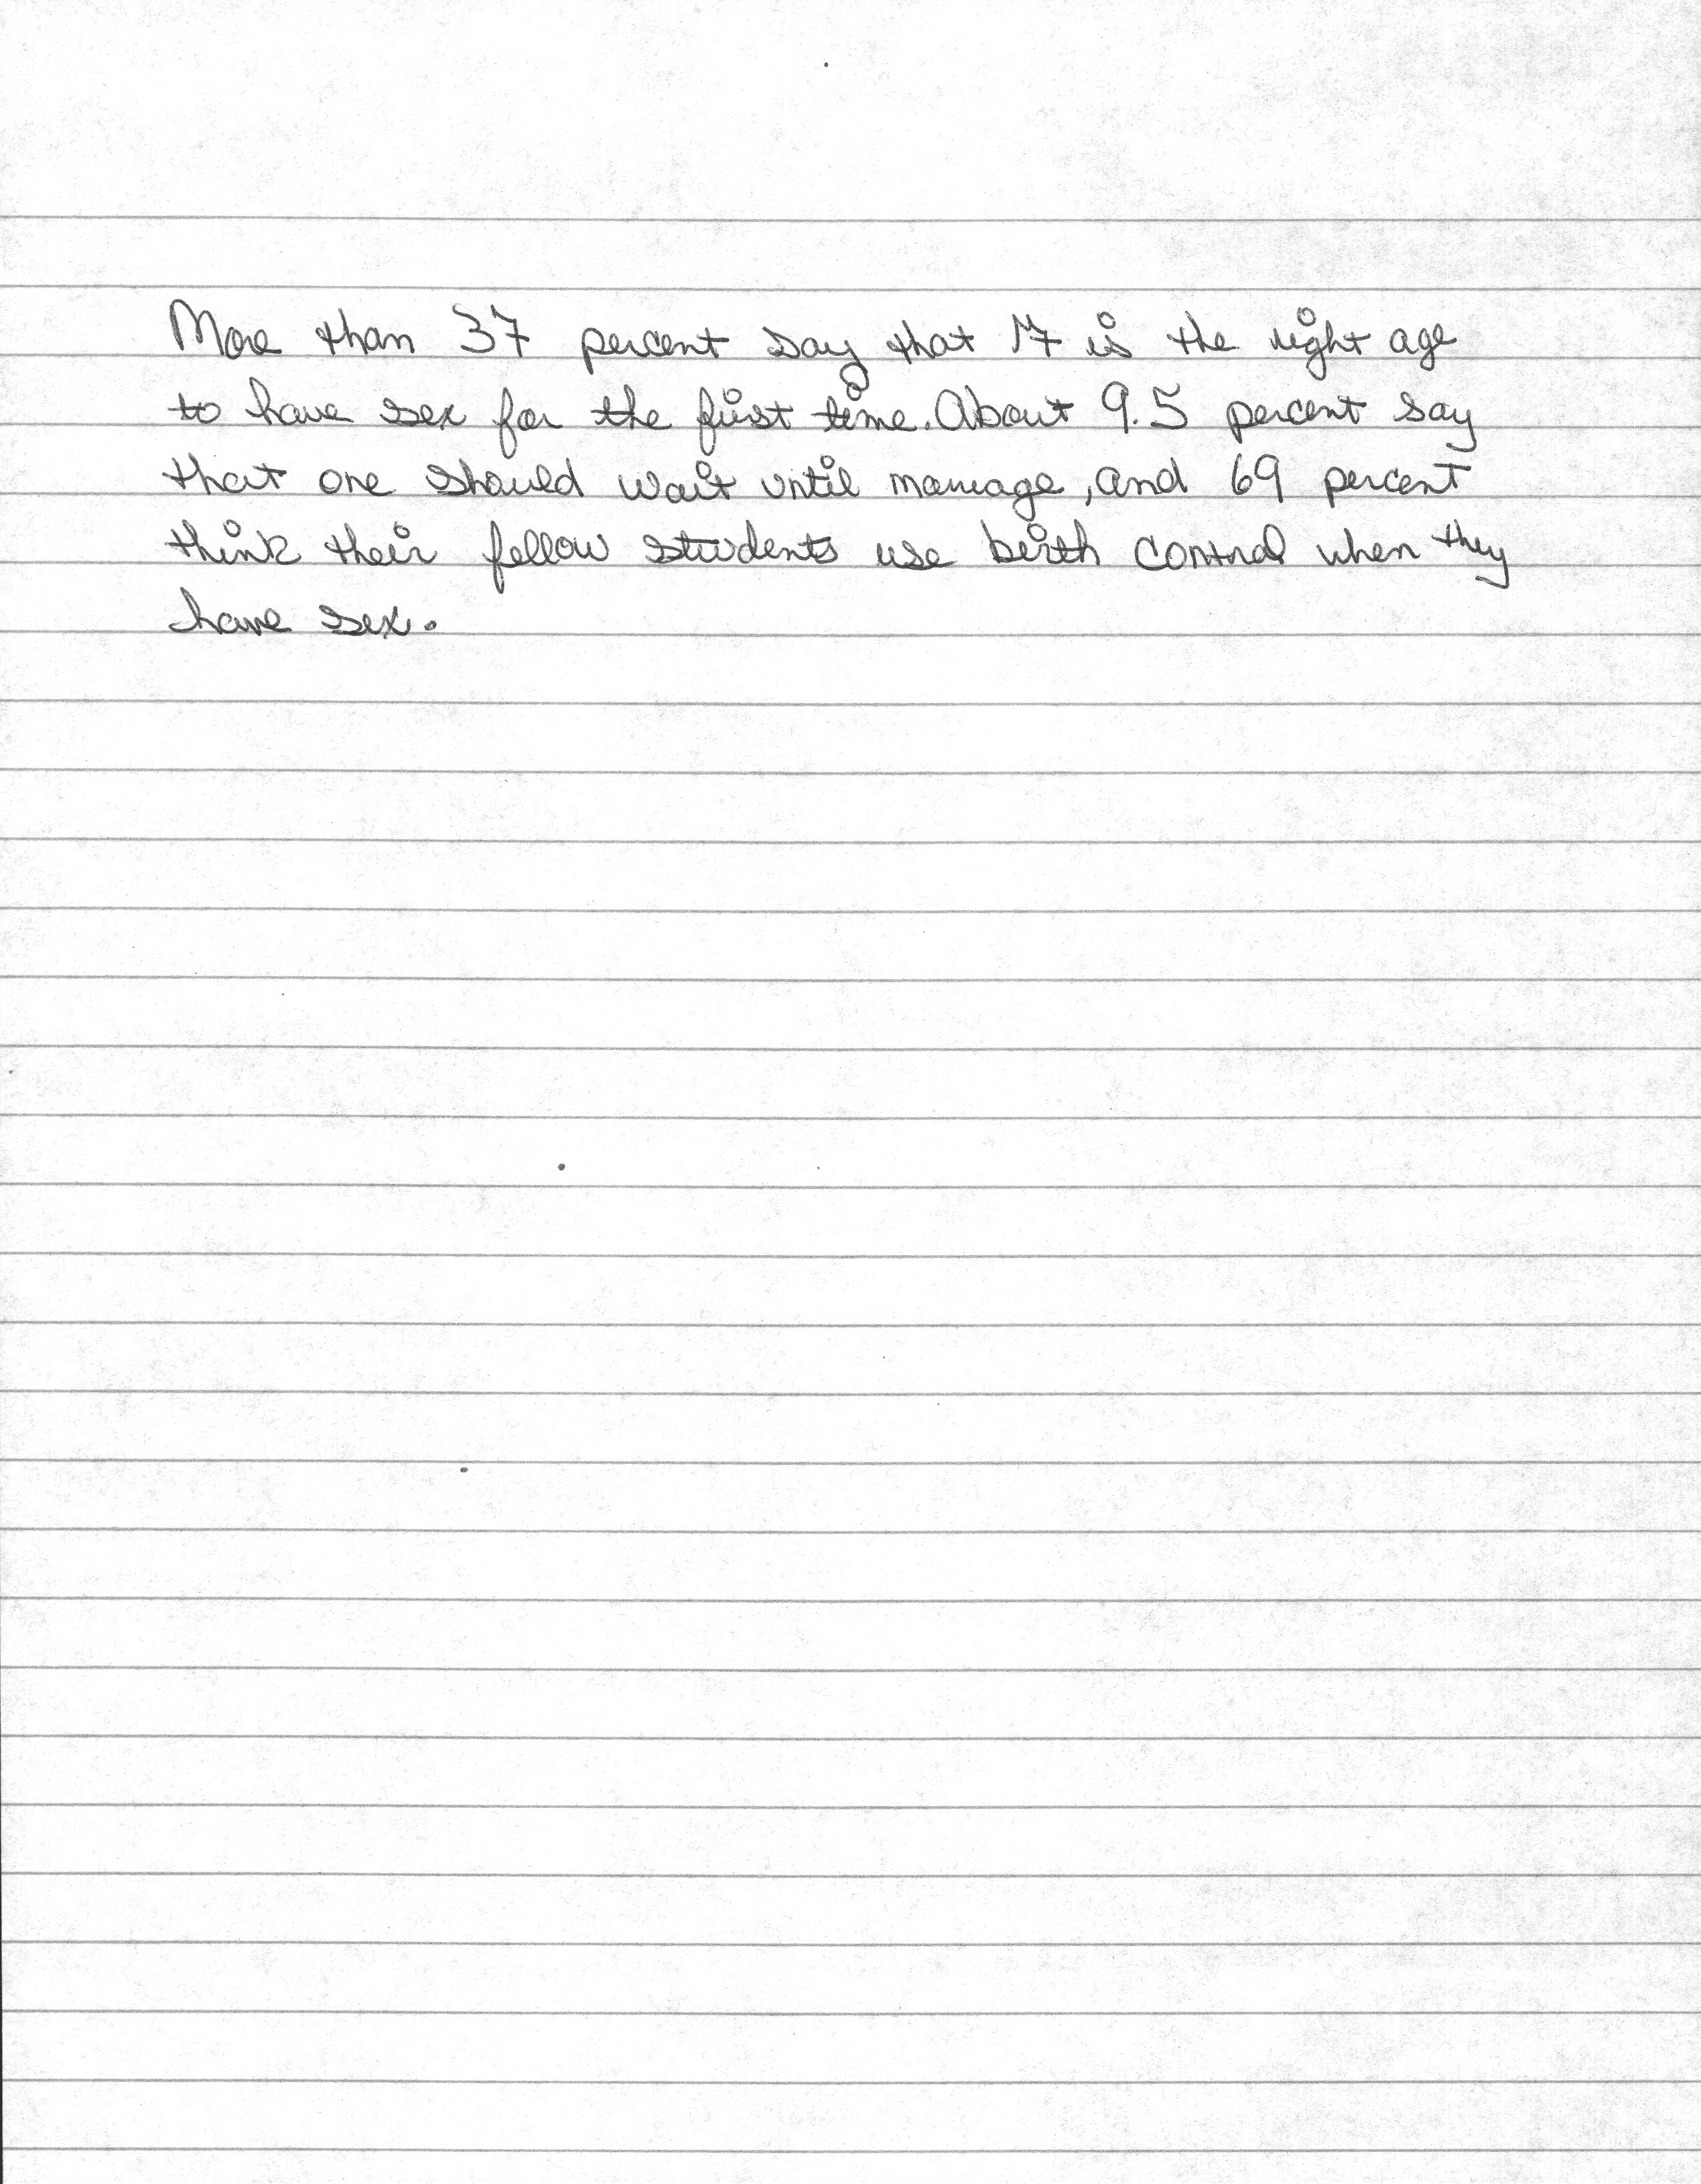 More than 37 percent say that 17 is the right age
to have sex for the first time. About 9.5 percent say
that one should wait until marriage, and 69 percent
think their fellow students use birth control when they
have sex.